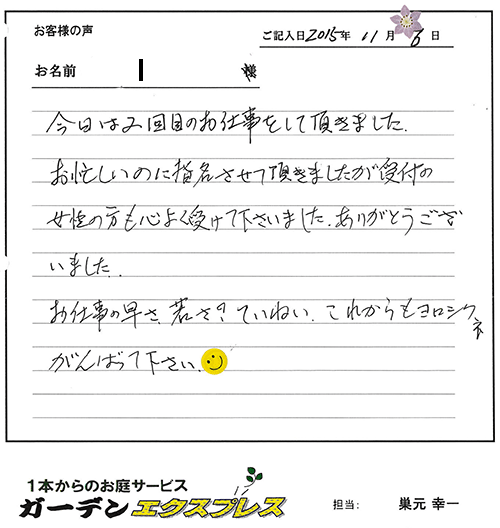 お客様の声
ご記入日2015年 11月 6日
お名前 様
今日は2回目のお仕事をして頂きました.
お忙しいのに指名させて頂きましたが受付の
女性の方も心よく受けて下さいました.ありがとうござ
いました.
お仕事の早さ、若さ!ていねい.これからもヨロシクネ
がんばって下さい.
1本からのお庭サービス
ガーデンエクスプレス
担当: 巣元 幸一